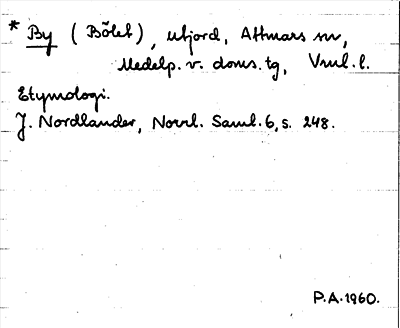 * By (Bölet), utjord, Attmars sn,
Medelp. v. doms. tg, Vnl. l.
Etymologi.
J. Nordlander, Norrl. Saml. 6, s. 248.
P.A. 1960.